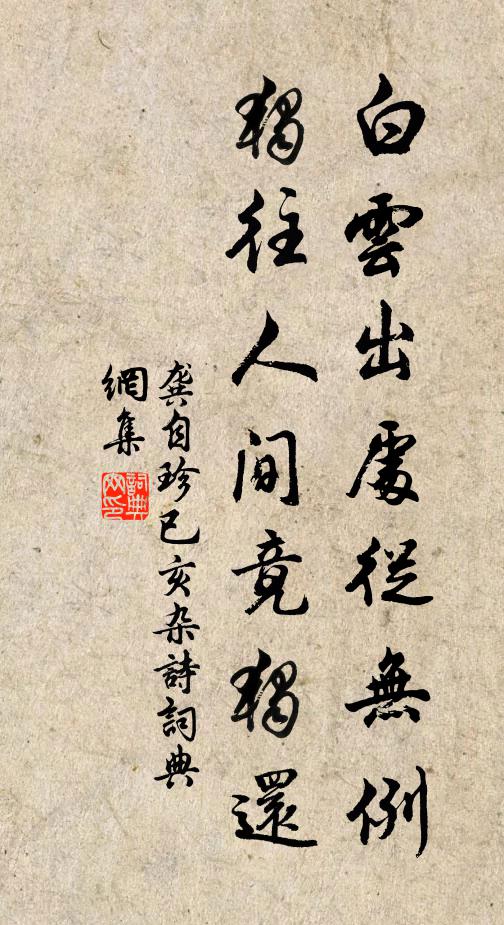 白雲出處從無例
獨往人間竟獨還
龔自珍己亥杂詩詞典
網集
詞典網印